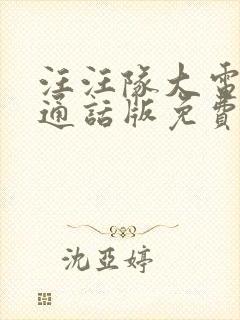 汪汪隊大電
通話版免費
沈亞婷